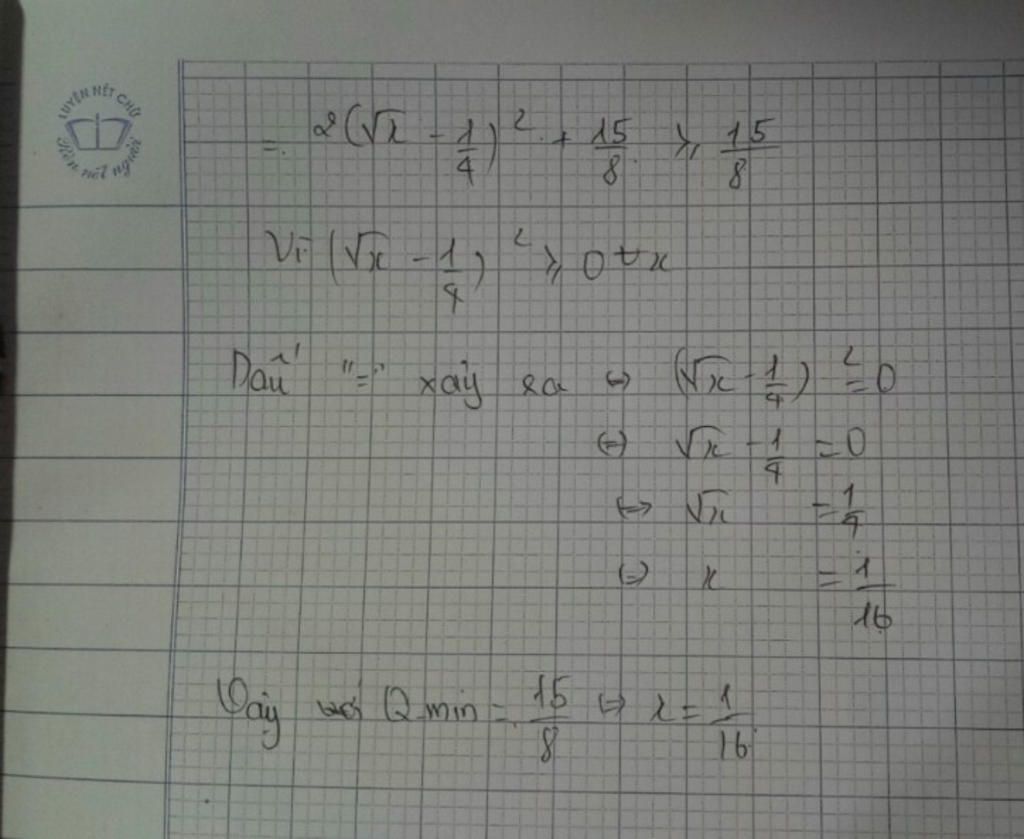 LUYỆN NÉT CHỮ
Rèn nết người
= 2(√x - 1/4)² + 15/8 ≥ 15/8
Vì (√x - 1/4)² ≥ 0 ∀x
Dấu "=" xảy ra ⇔ (√x - 1/4)² = 0
⇔ √x - 1/4 = 0
⇔ √x = 1/4
⇔ x = 1/16
Vậy Q min = 15/8 ⇔ x = 1/16